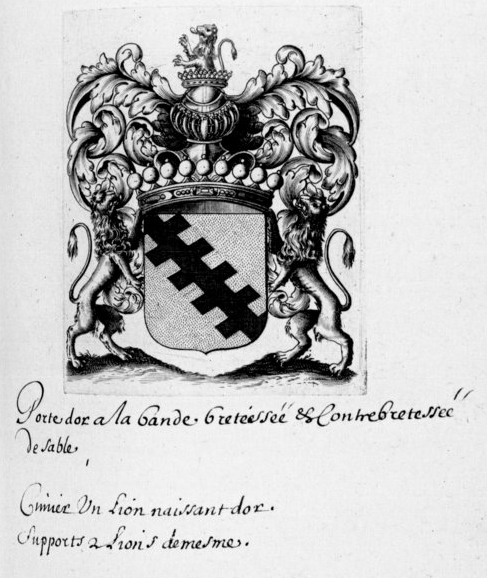 Porte dor a la bande bretéssée & Contrebretessée
de sable
Cimier Un Lion naissant dor.
Supports 2 Lions de mesme.